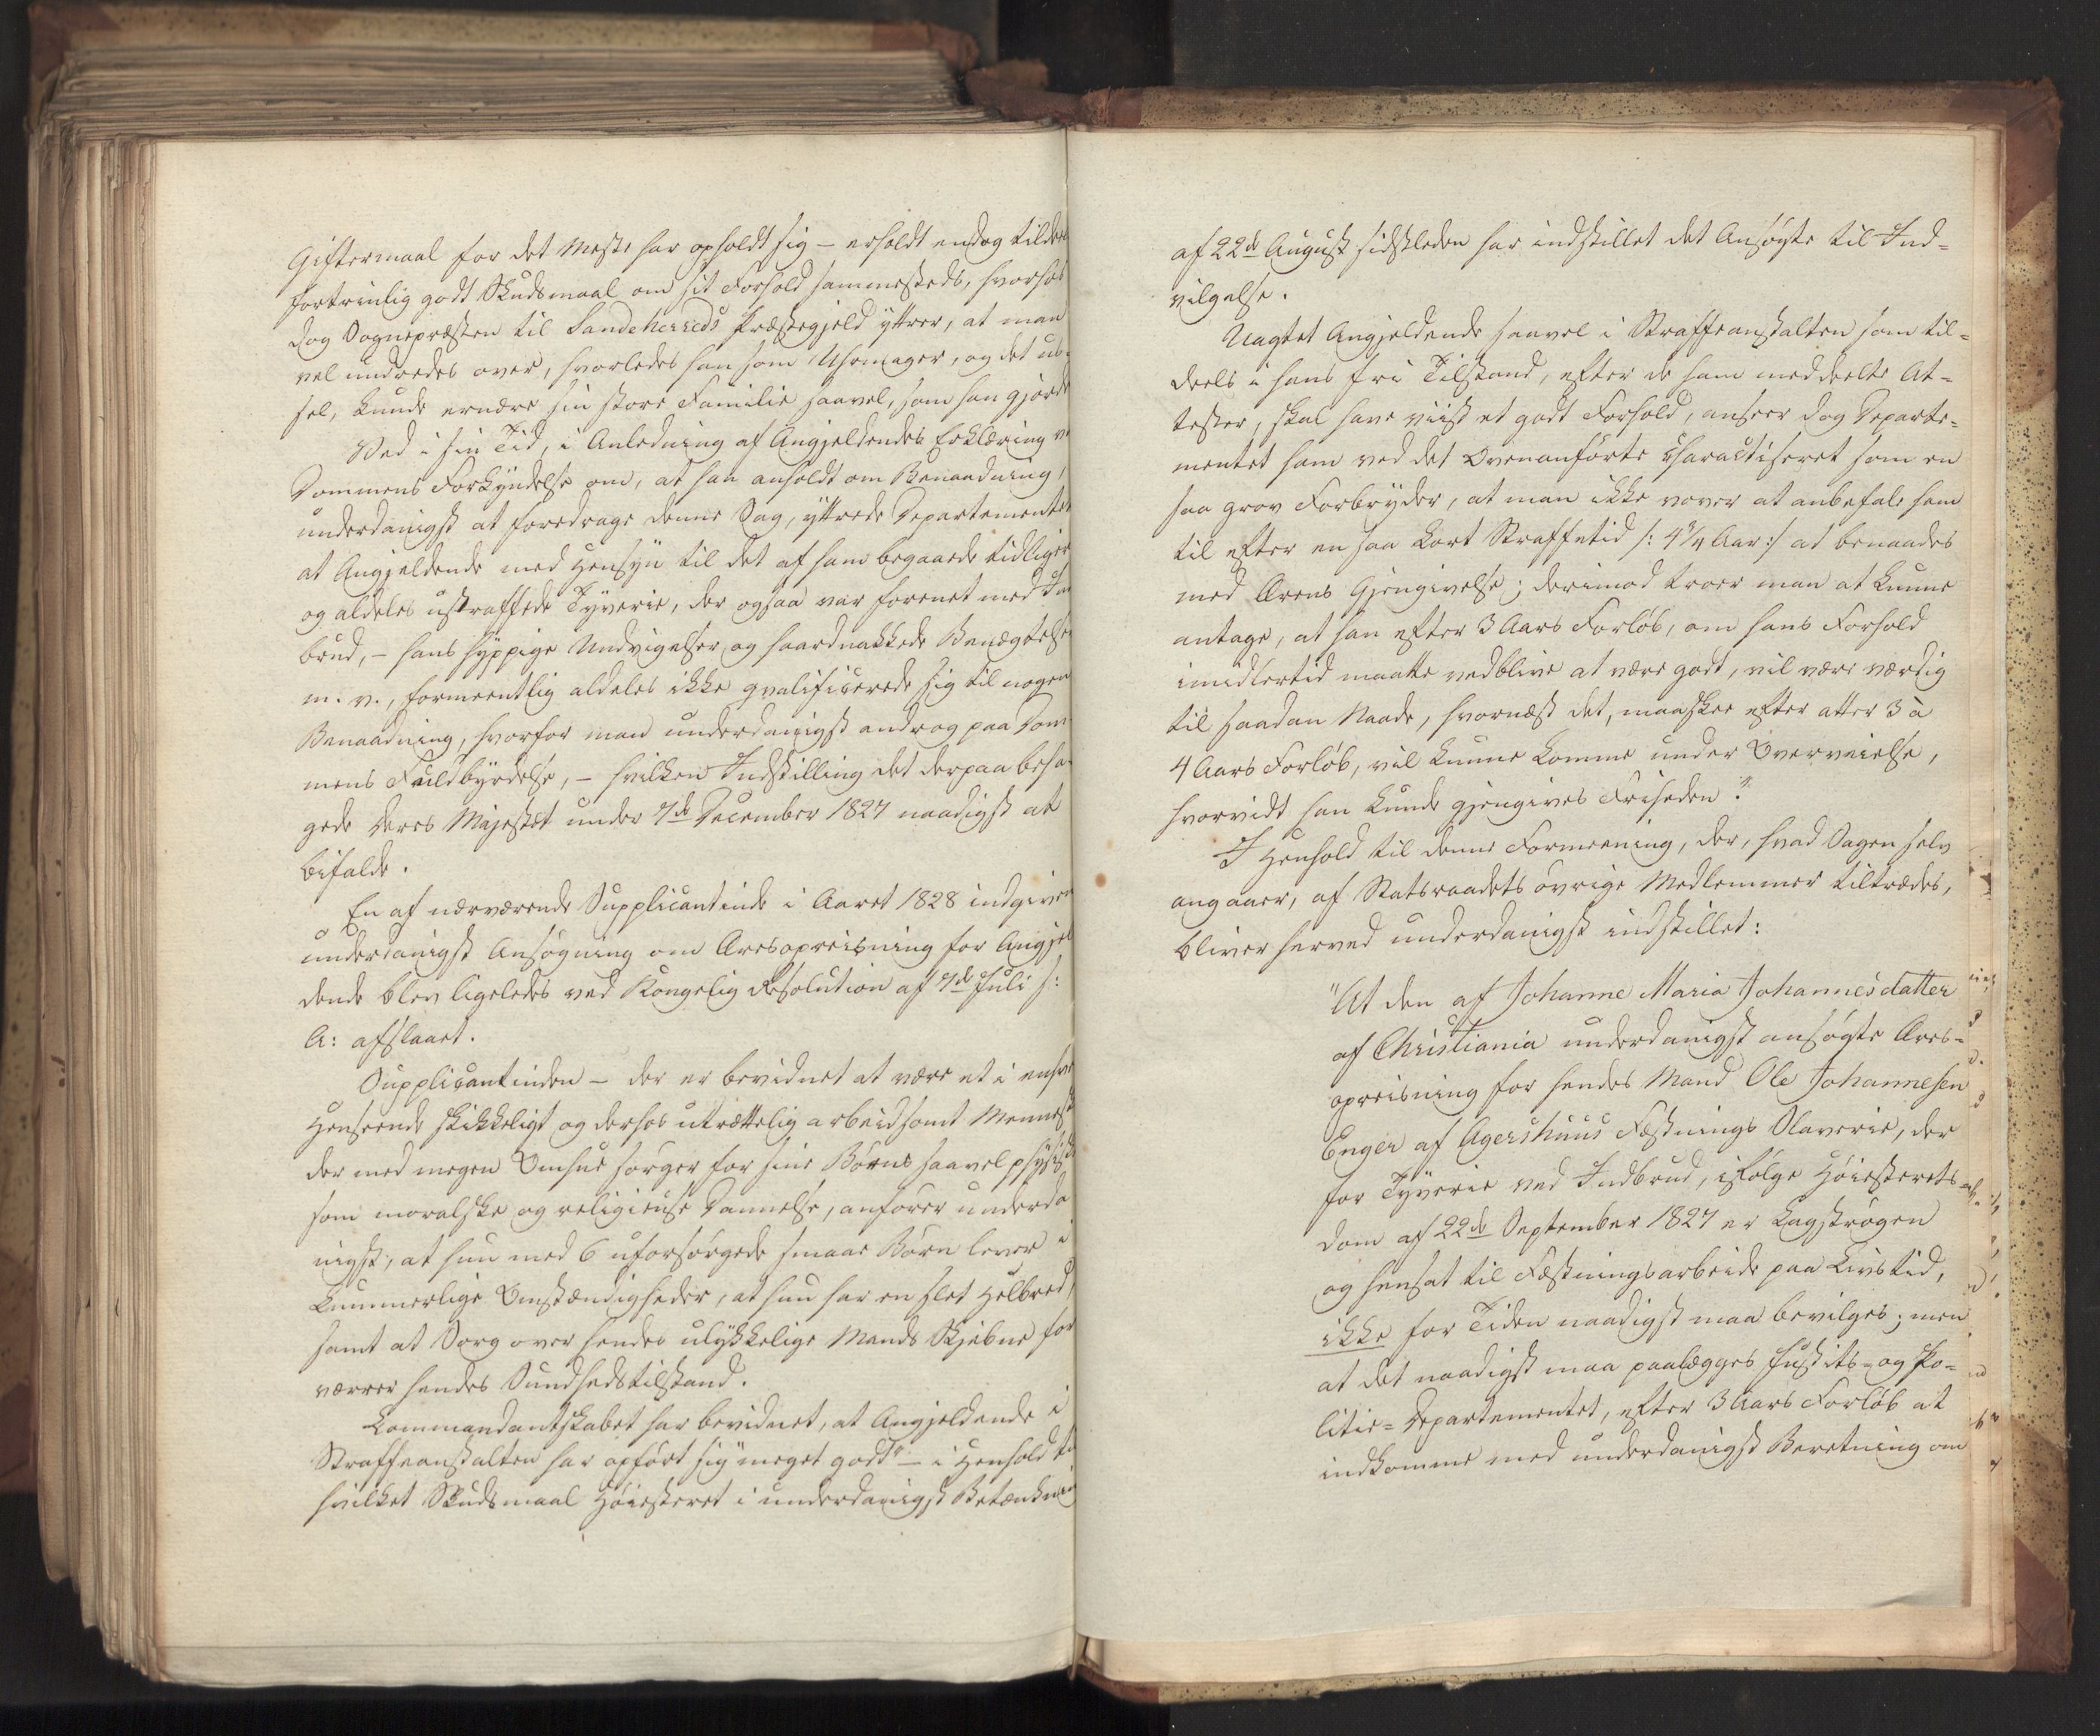 Giftermaal for det Meste har opholdt sig – erholdt endog tildeels
fortrinlig godt Skudsmaal om sit Forhold sammesteds, hvorhos
dog Sognepræsten til Sandeherreds Præstegjeld yttrer, at man
vel undredes over, hvorledes han som Uhrmager, og det
sel, kunde ernære sin store Familie saavel, som han gjorde
Ved i sin Tid, i Anledning af Angjeldendes Erklæring ve
Dommens Forkyndelse om, at han anholdt om Benaadning,
underdanigst at foredrage denne Sag, yttrede Departementet
at Angjeldende med Hensyn til det af ham begaaede tidligere
og aldeles ustraffede Tyverie, der ogsaa var forenet med Ind
brud, – hans hyppige Undvigelser og haardnakkede Benægtelse
m. v., formeentlig aldeles ikke qvalificerede sig til nogen
Benaadning, hvorfor man underdanigst androg paa Dom
mens Fuldbyrdelse, – hvilken Indstilling det derpaa beha
gede Deres Majestæt under 7de December 1827 naadigst at
bifalde.
En af nærværende Supplicantinde i Aaret 1828 indgiven
underdanigst Ansøgning om Æresopreisning for Angjel
dende blev ligeledes ved Kongelig Resolution af 7de Juli s:
A: afslaaet.
Supplicantinden – der er bevidnet at være et i enhver
Henseende skikkeligt og derhos utrættelig arbeidsomt Menneske
der med megen Omhue sørger for sine Børns saavel physiske
som moralske og religieuse Dannelse, anfører underda
nigst, at hun med 6 uforsørgede smaae Børn lever i
kummerlige Omstændigheder, at hun har en slet Helbred,
samt at Sorg over hendes ulykkelige Mands Skjebne for
værrer hendes Sundhedstilstand.
Commandantskabet har bevidnet, at Angjeldende i
Straffeanstalten har opført sig "meget godt" – i Henhold til
hvilket Skudsmaal Høiesteret i underdanigst Betænkning
af 22de August sidstleden har indstillet det Ansøgte til Ind=
vilgelse.
Uagtet Angjeldende saavel i Straffeanstalten som til=
deels i hans frie Tilstand, efter de ham meddeelte At=
tester, skal have viist et godt Forhold, anseer dog Departe=
mentet ham ved det Ovenanførte characteriseret som en
saa grov Forbryder, at man ikke vover at anbefale ham
til efter en saa kort Straffetid /: 4¾ Aar :/ at benaades
med Ærens Gjengivelse; derimod troer man at kunne
antage, at han efter 3 Aars Forløb, om hans Forhold
imidlertid maatte vedblive at være godt, vil være værdig
til saadan Naade, hvornæst det, maaskee efter atter 3 à
4 Aars Forløb, vil kunne komme under Overveielse,
hvorvidt han kunde gjengives Friheden."
I Henhold til denne Formening, der, hvad Sagen selv
angaaer, af Statsraadets øvrige Medlemmer tiltrædes,
bliver herved underdanigst indstillet:
"At den af Johanne Maria Johannesdatter
af Christiania underdanigst ansøgte Æres=
opreisning for hendes Mand Ole Johannesen
Enger af Agershuus Fæstnings Slaverie, der
for Tyverie ved Indbrud, ifølge Høiesterets=
dom af 22de September 1827 er kagstrøgen
og hensat til Fæstningsarbeide paa Livstid,
ikke for Tiden naadigst maa bevilges; men
at det naadigst maa paalægges Justits= og Po=
litie=Departementet, efter 3 Aars Forløb at
indkomme med underdanigst Beretning om